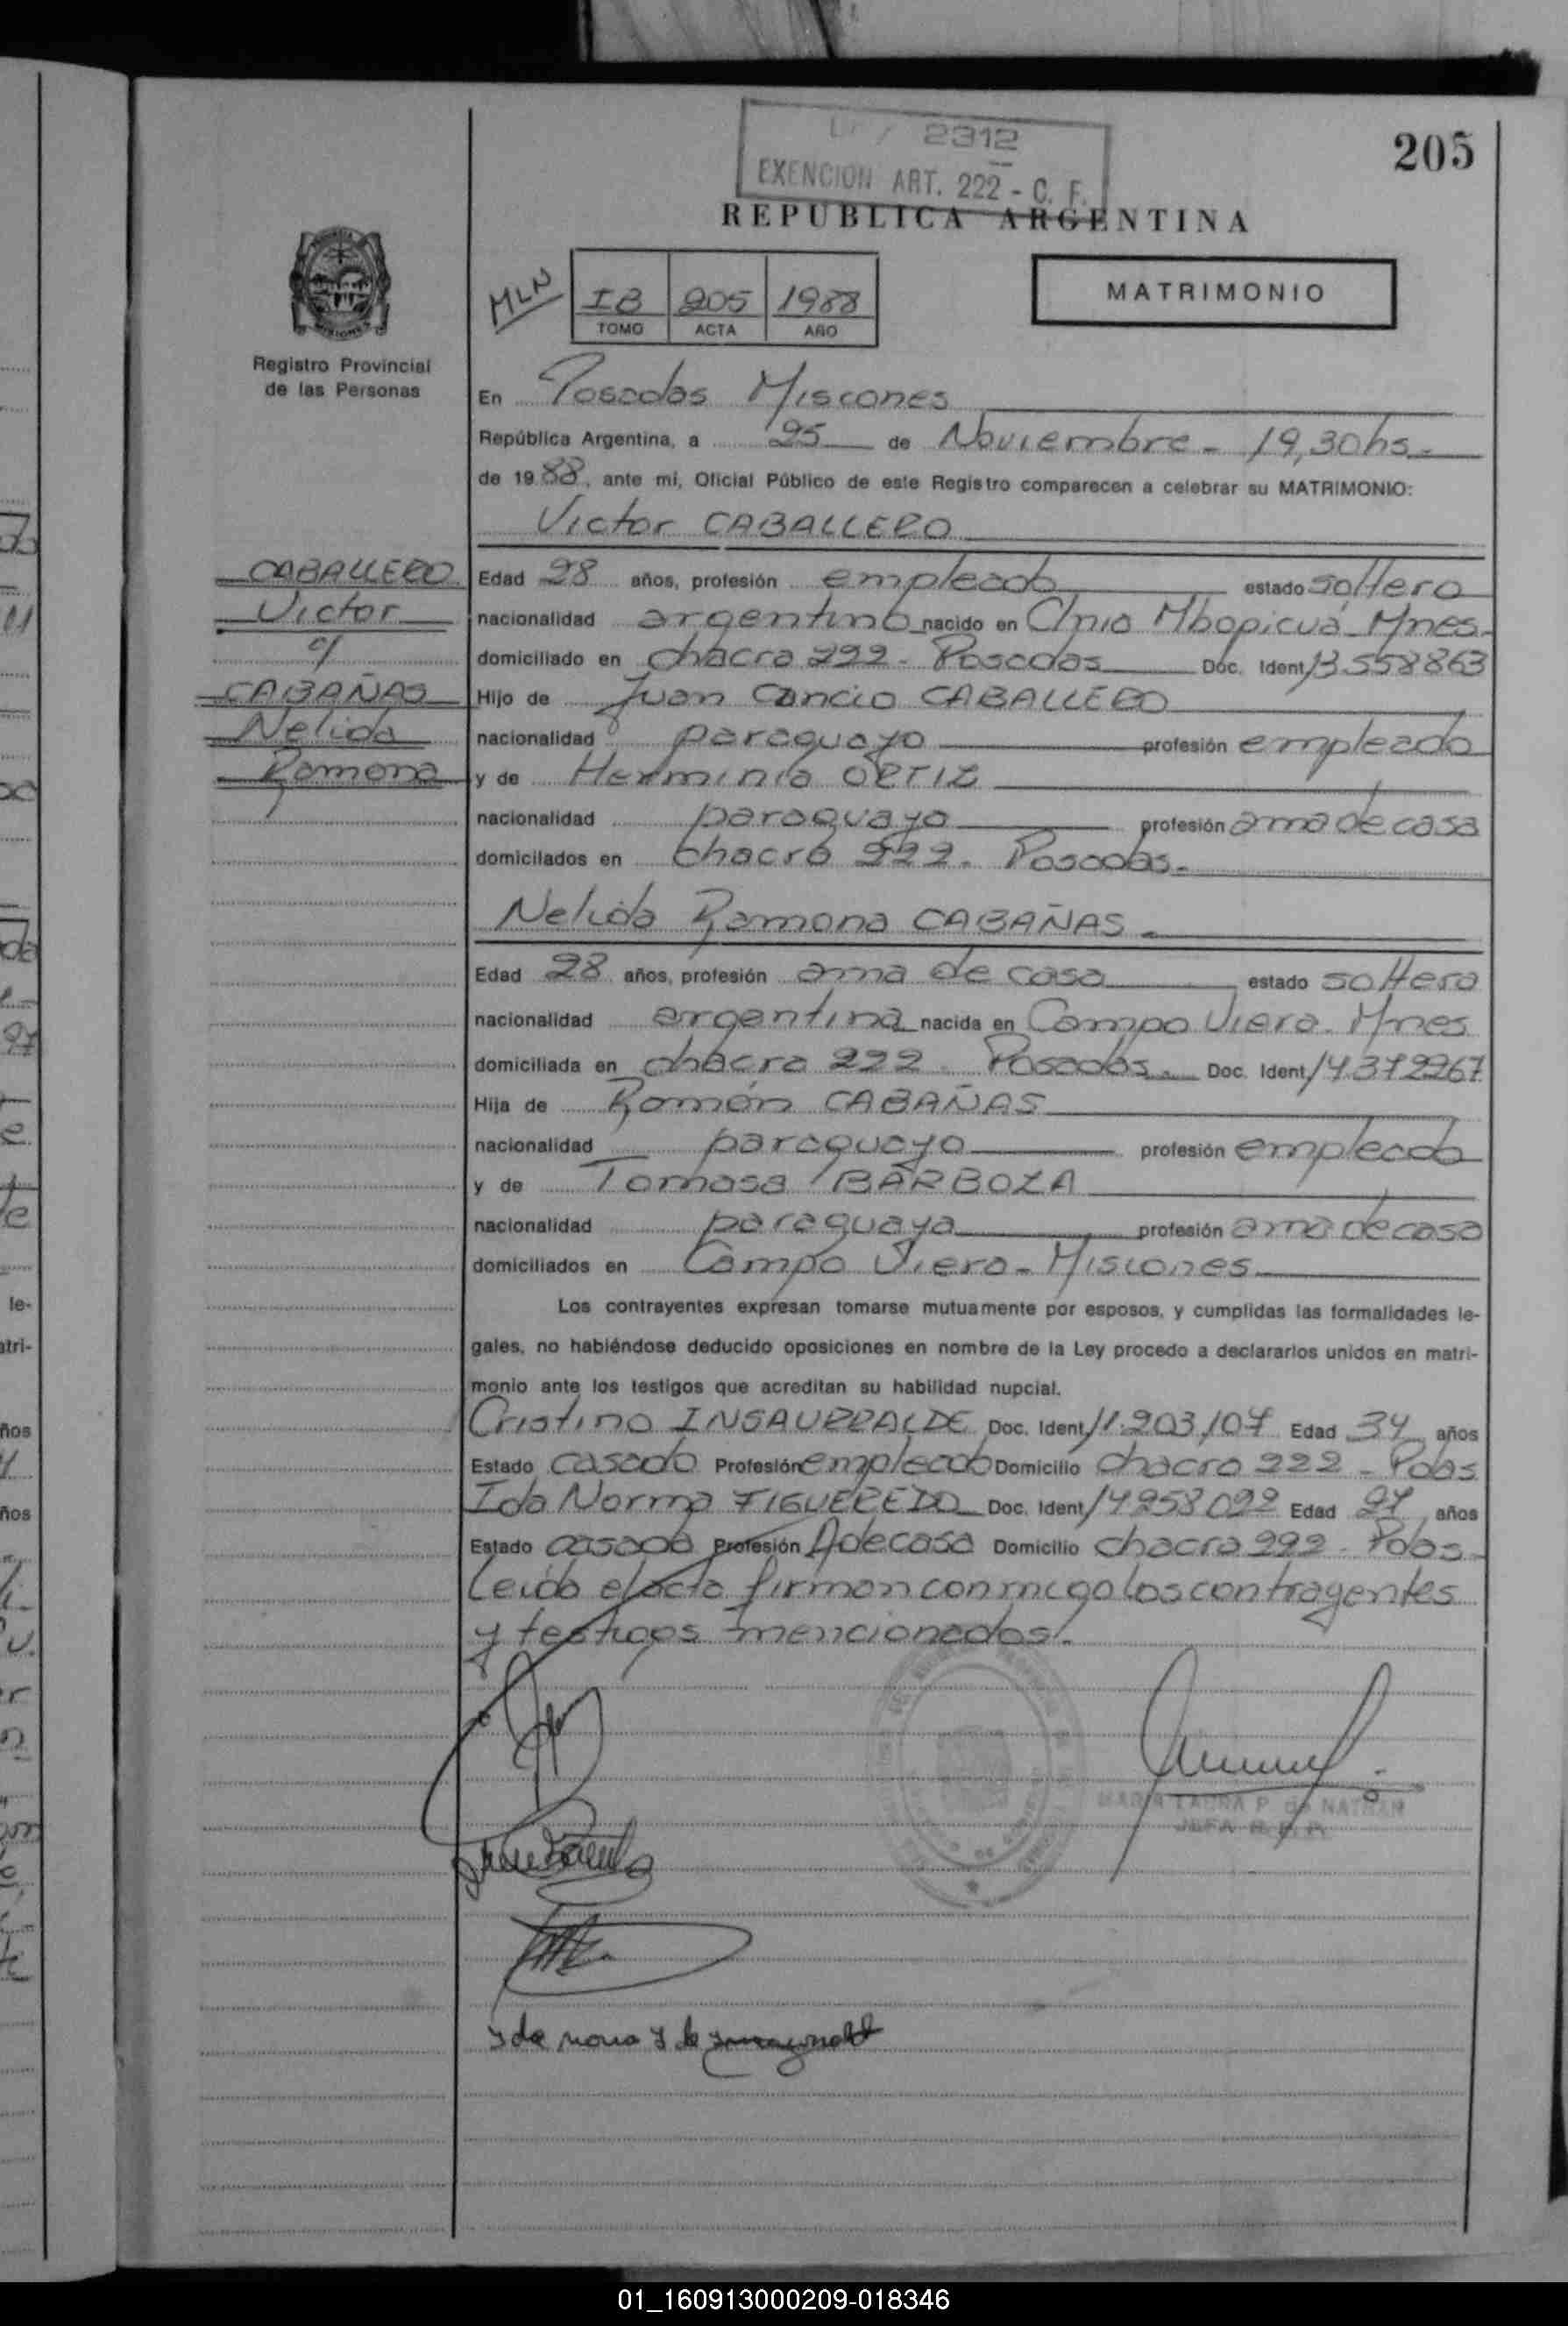 2312
EXENCION ART. 222 - C. F.
205
REPUBLICA ARGENTINA
MLN
IB 205 1988
TOMO ACTA AÑO
MATRIMONIO
Registro Provincial
de las Personas
En Posadas Misiones
República Argentina, a 25 de Noviembre - 19,30hs -
de 1988, ante mi, Oficial Público de este Registro comparecen a celebrar su MATRIMONIO:
Victor CABALLERO
CABALLERO
Victor
c/
CABAÑAS
Nelida
Ramona
Edad 28 años, profesión empleado estado soltero
nacionalidad argentino nacido en Clnia Mbopicuá Mnes.
domiciliado en chacra 222 - Posadas Doc. Ident 13.558863
Hijo de Juan Cancio CABALLERO
nacionalidad paraguayo profesión empleado
y de Herminia ORTIZ
nacionalidad paraguaya profesión ama de casa
domicilados en chacra 222. Posadas.
Nelida Ramona CABAÑAS.
Edad 28 años, profesión ama de casa estado soltera
nacionalidad argentina nacida en Campo Viera. Mnes
domiciliada en chacra 222. Posadas. Doc. Ident 14.372267
Hija de Ramón CABAÑAS
nacionalidad paraguayo profesión empleado
y de Tomasa BARBOZA
nacionalidad paraguaya profesión ama de casa
domiciliados en Campo Viera - Misiones
Los contrayentes expresan tomarse mutuamente por esposos, y cumplidas las formalidades le-
gales, no habiéndose deducido oposiciones en nombre de la Ley procedo a declararlos unidos en matri-
monio ante los testigos que acreditan su habilidad nupcial.
Cristino INSAURRALDE Doc. Ident 11.203.107 Edad 34 años
Estado casado Profesión empleado Domicilio chacra 222 - Pdas
Ida Norma FIGUEREDO Doc. Ident 14258092 Edad 27 años
Estado casada Profesión A de casa Domicilio chacra 222 - Pdas -
Leída el acta firman conmigo los contrayentes
y testigos mencionados.
MARIA LAURA P. de NATHAN
JEFA R. P. P.
01_160913000209-018346